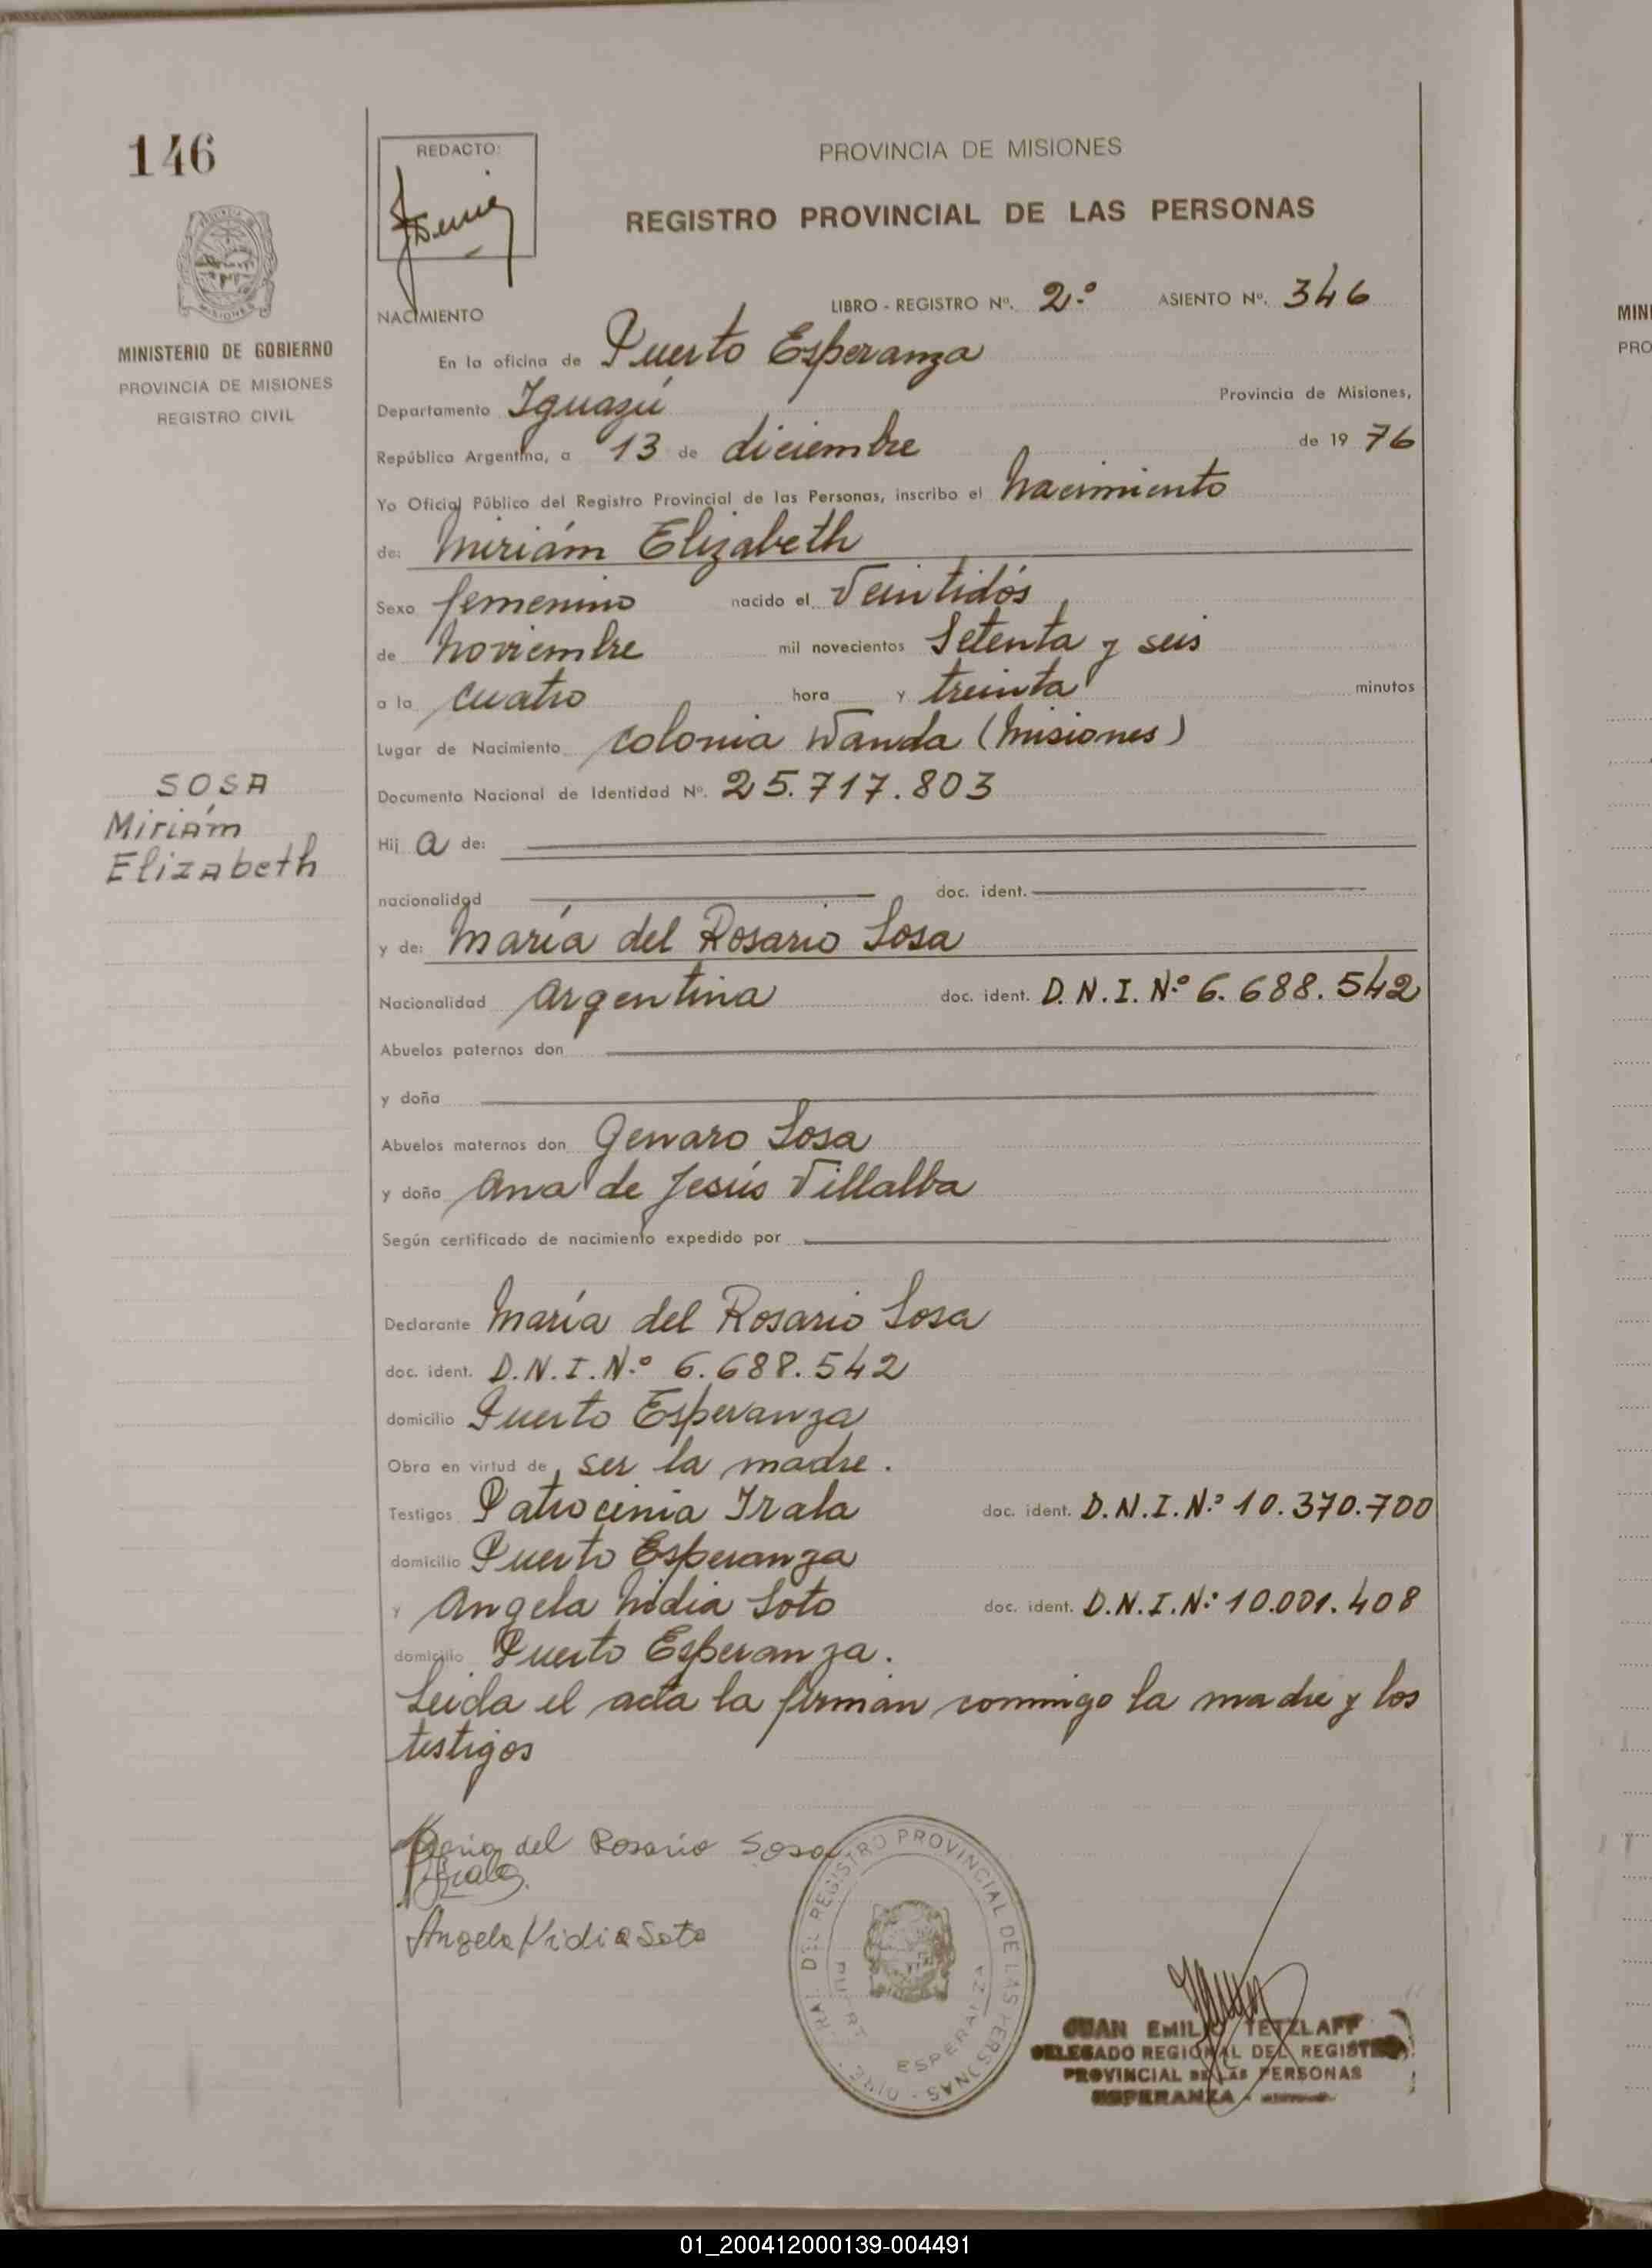 146
REDACTO:
PROVINCIA DE MISIONES
REGISTRO PROVINCIAL DE LAS PERSONAS
MINISTERIO DE GOBIERNO
PROVINCIA DE MISIONES
REGISTRO CIVIL
NACIMIENTO
LIBRO - REGISTRO Nº. 2.º ASIENTO Nº. 346
En la oficina de Puerto Esperanza
Departamento Iguazú Provincia de Misiones,
República Argentina, a 13 de diciembre de 19 76
Yo Oficial Público del Registro Provincial de las Personas, inscribo el Nacimiento
de: Miriám Elizabeth
Sexo femenino nacido el Veintidós
de Noviembre mil novecientos Setenta y seis
a la cuatro hora y treinta minutos
Lugar de Nacimiento Colonia Wanda (Misiones)
SOSA
Miriám
Elizabeth
Documento Nacional de Identidad Nº. 25.717.803
Hij a de:
nacionalidad doc. ident.
y de: María del Rosario Sosa
Nacionalidad Argentina doc. ident. D.N.I.N.º 6.688.542
Abuelos paternos don
y doña
Abuelos maternos don Genaro Sosa
y doña Ana de Jesús Villalba
Según certificado de nacimiento expedido por
Declarante María del Rosario Sosa
doc. ident. D.N.I.N.º 6.688.542
domicilio Puerto Esperanza
Obra en virtud de, ser la madre.
Testigos Patrocinia Irala doc. ident. D.N.I.N.º 10.370.700
domicilio Puerto Esperanza
y Angela Nidia Soto doc. ident. D.N.I.N.º 10.001.408
domicilio Puerto Esperanza.
Leida el acta la firman conmigo la madre y los
testigos
Maria del Rosario Sosa
Irala
Angela Nidia Soto
DEL REGISTRO PROVINCIAL DE LAS PERSONAS
ESPERANZA
JUAN EMILIO TETZLAFF
DELEGADO REGIONAL DEL REGISTRO
PROVINCIAL DE LAS PERSONAS
ESPERANZA
MINI
PRO
01_200412000139-004491